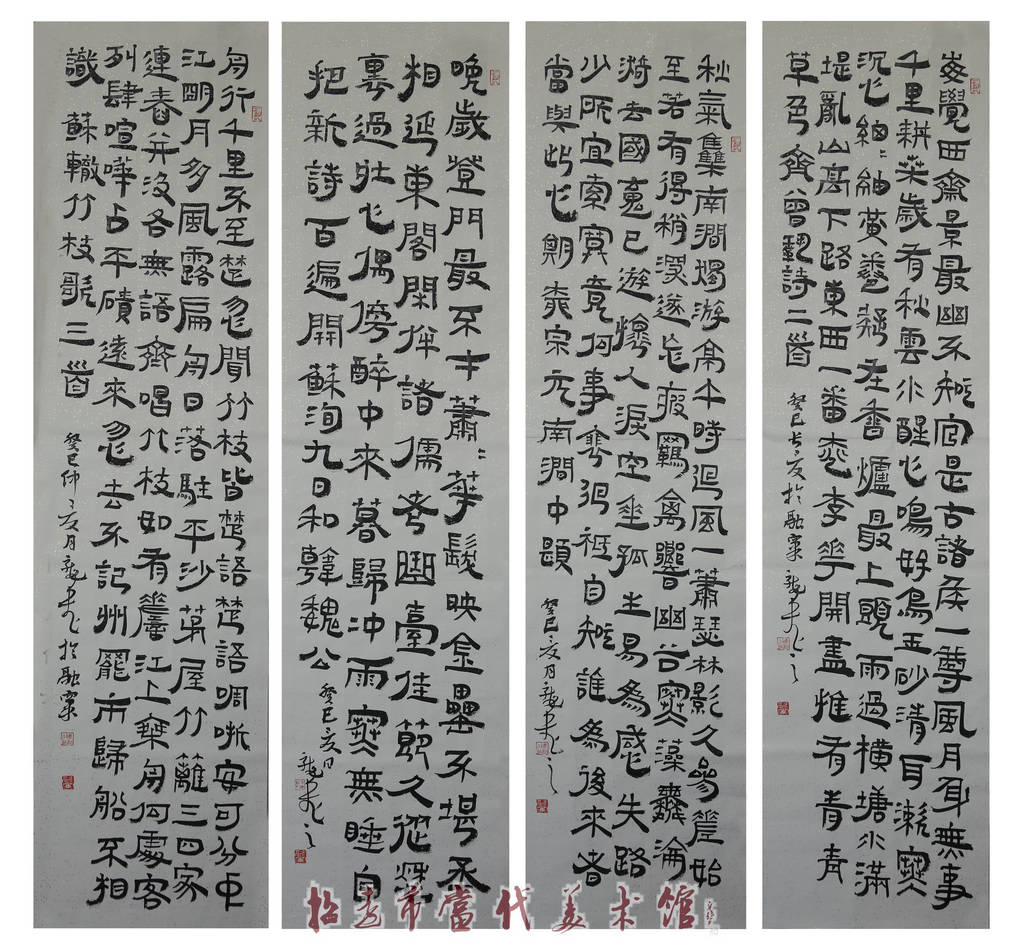 每覺西齋景最幽不知官是古諸侯一尊風月身無事
千里耕桑歲有秋雲水醒心鳴好鳥玉砂清耳漱寒
沉心細細紬黃卷疑在香爐最上頭雨過橫塘水滿
堤亂山高下路東西一番桃李花開盡惟有青青
草色齊曾鞏詩二首 癸巳長夏於融
秋氣集南澗獨游亭午時迴風一蕭瑟林影久參差始
至若有得稍深遂忘疲羈禽響幽谷寒藻舞淪
漪去國魂已遊懷人淚空垂孤生易為感失路
少所宜索寞竟何事徘徊衹自知誰為後來者
當與此心期柳宗元南澗中題 癸巳夏月
晚歲登門最不才蕭蕭華髮映金罍不堪丞
相延東閣閑伴諸儒老曲臺佳節久從愁
裏過壯心偶傍醉中來暮歸沖雨寒無睡自
把新詩百遍開蘇洵九日和韓魏公 癸巳夏月
舟行千里不至楚忽聞竹枝皆楚語楚語啁哳安可分中
江明月多風露扁舟日落駐平沙茅屋竹籬三四家
連舂并汲各無語齊唱竹枝如有嗟江上乘舟何處客
列肆喧嘩占平磧遠來忽去不記州罷市歸船不相
識 蘇轍竹枝歌三首 癸巳仲夏月 於融
招远市當代美术馆